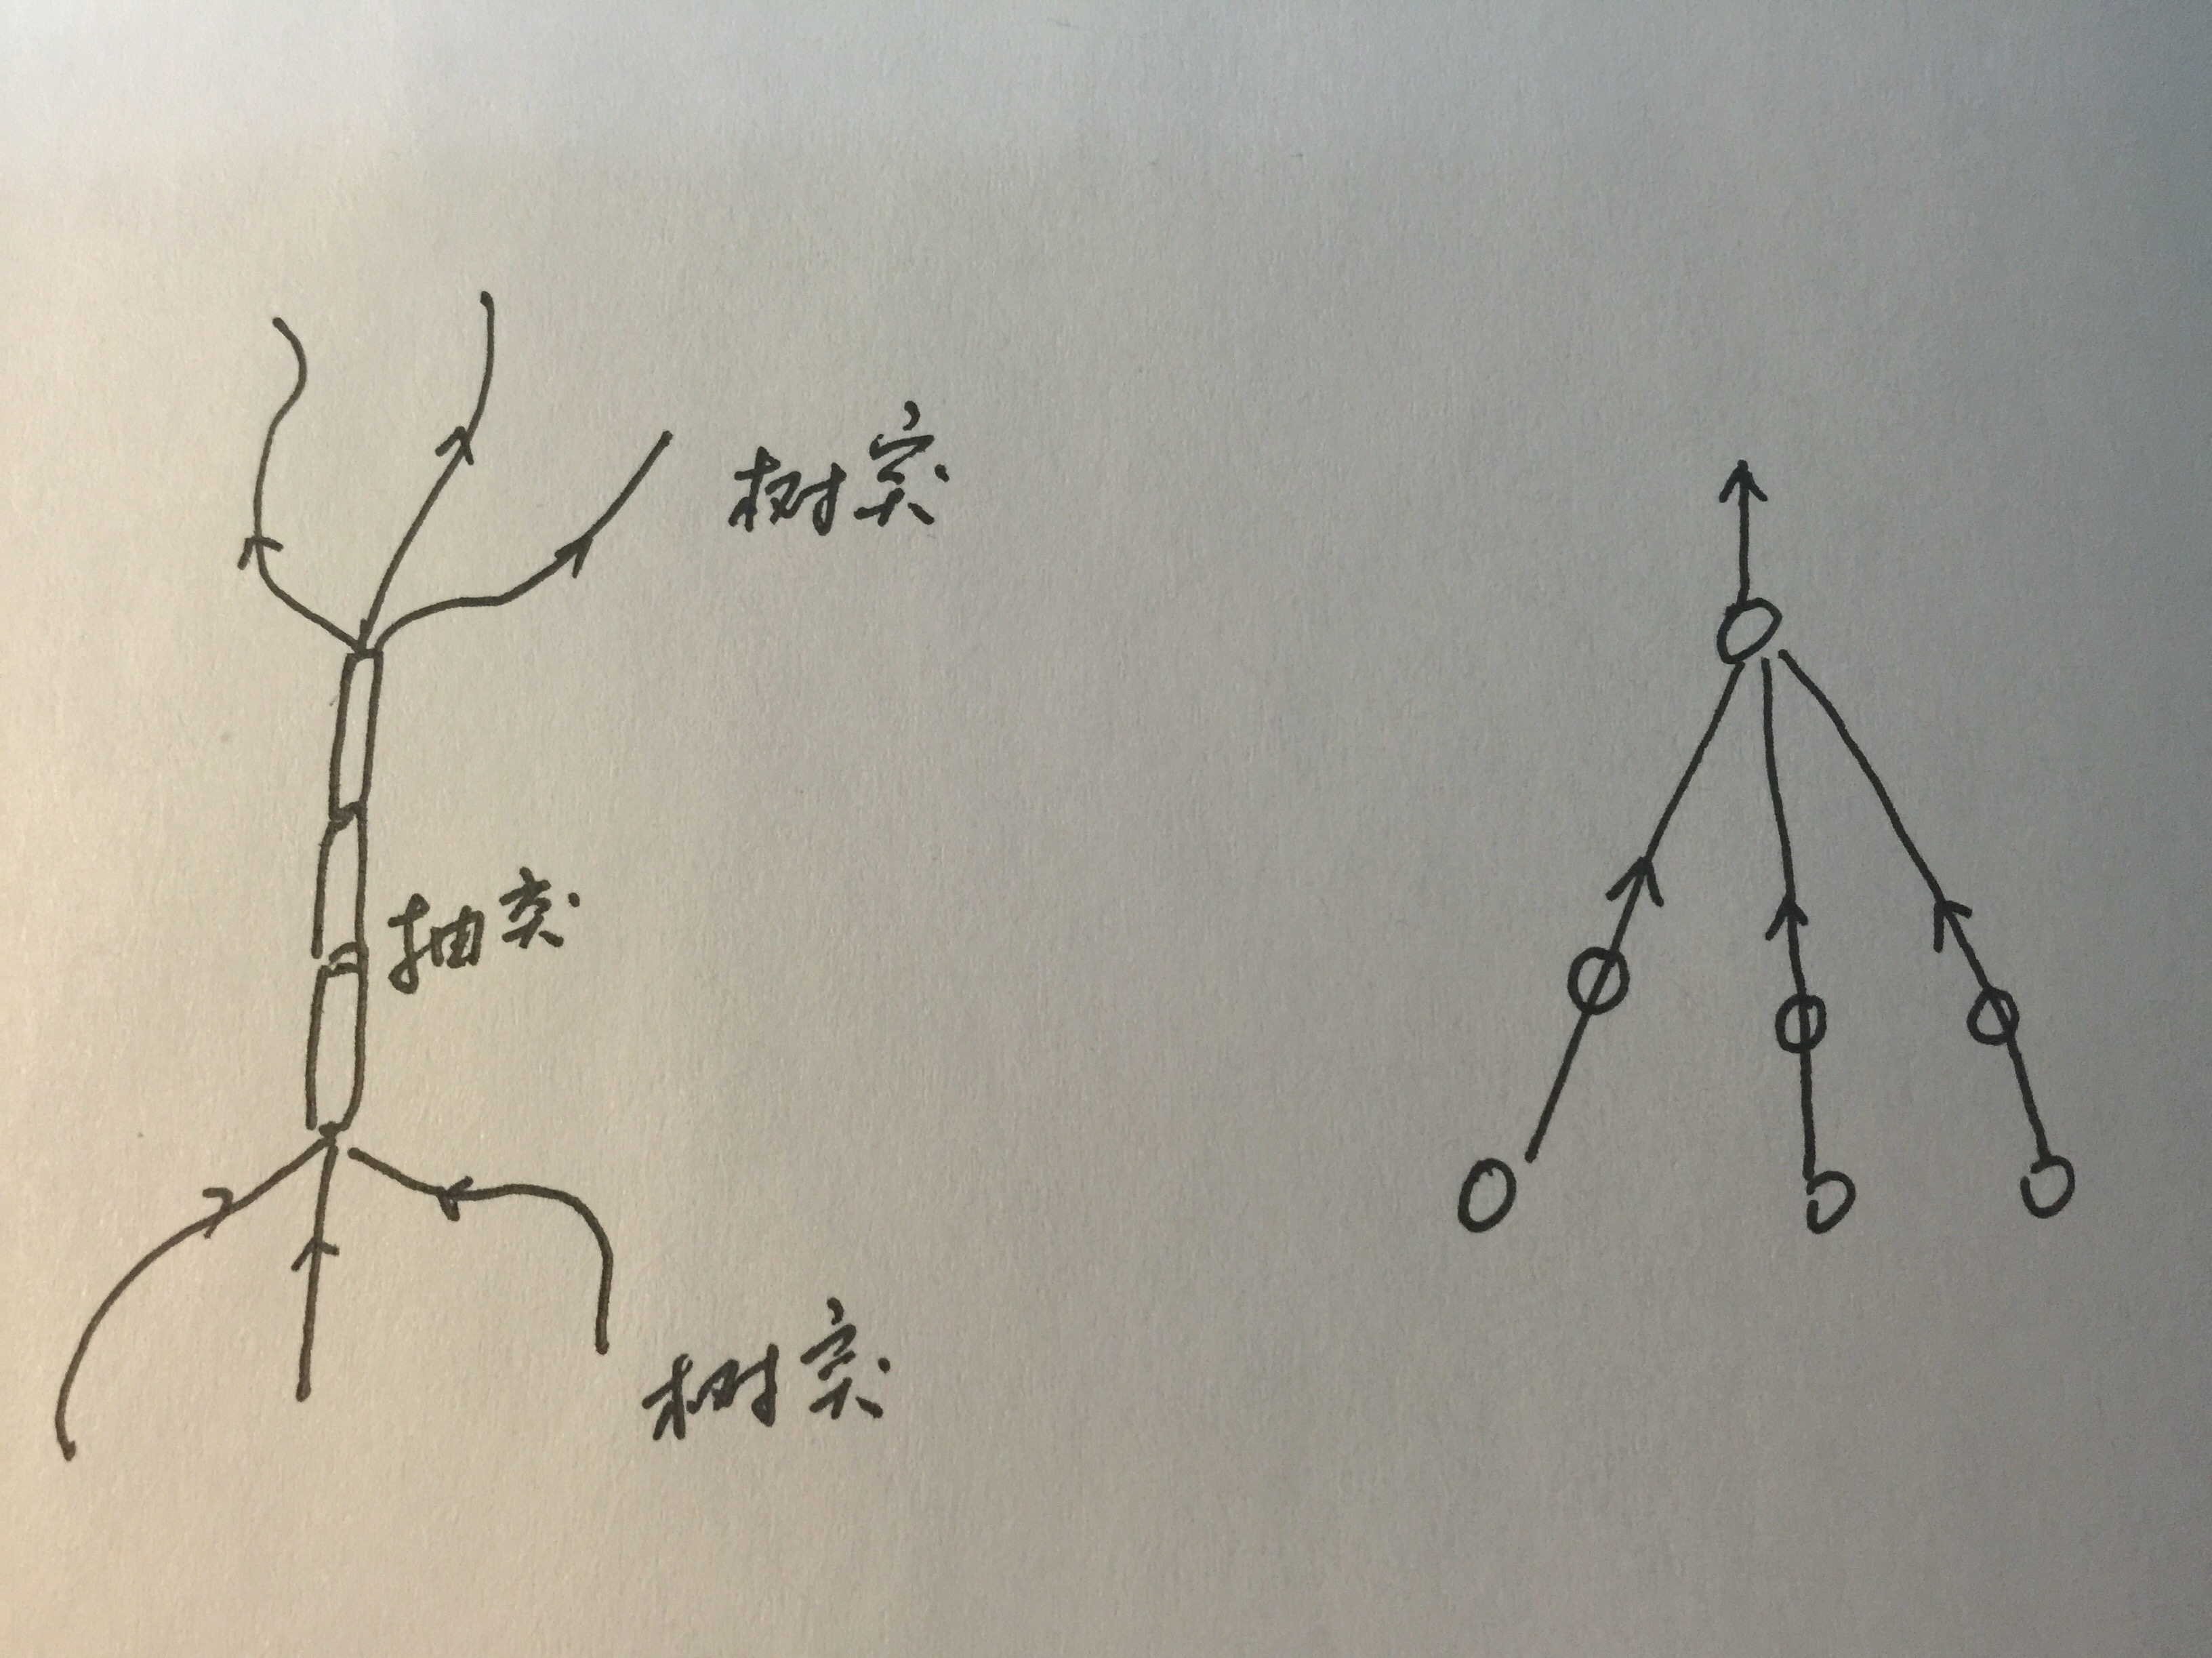 树突
抽突
树突